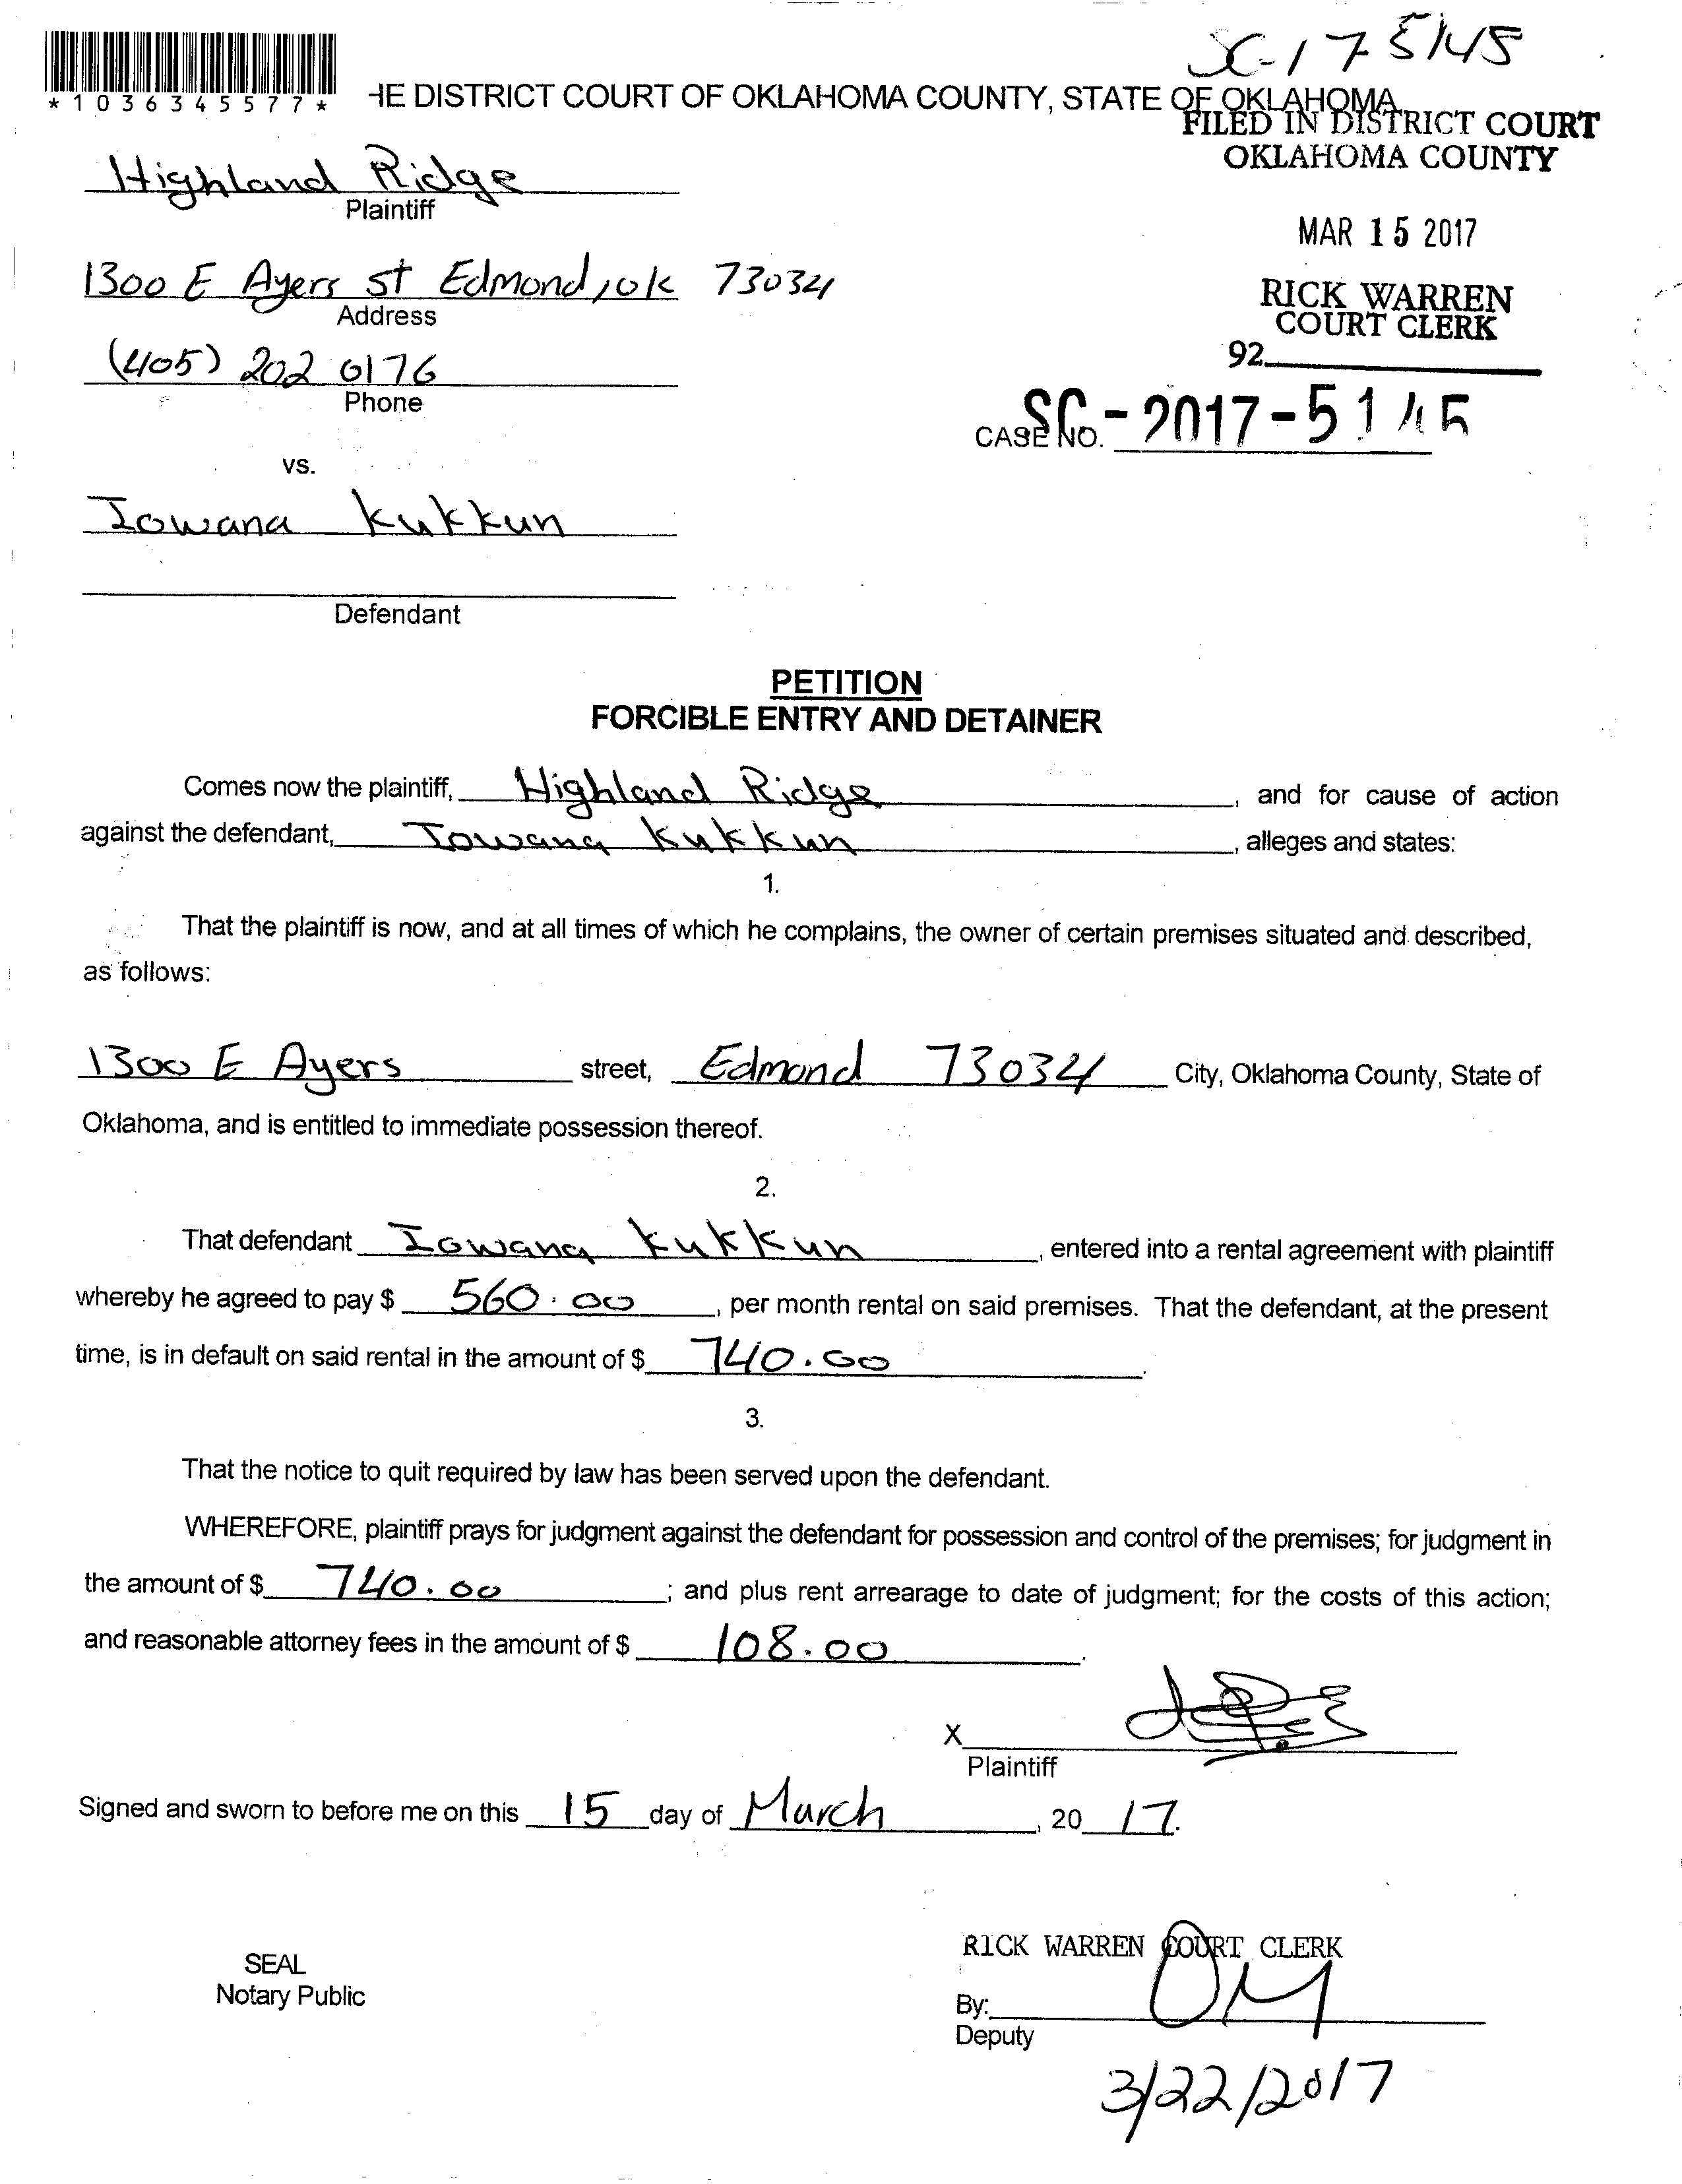 SC-17 5145
*1036345577*
HE DISTRICT COURT OF OKLAHOMA COUNTY, STATE OF OKLAHOMA
FILED IN DISTRICT COURT
OKLAHOMA COUNTY
Highland Ridge
Plaintiff
MAR 15 2017
1300 E Ayers St Edmond, ok 73034
Address
RICK WARREN
COURT CLERK
(405) 202 0176
Phone
92
CASE NO. SC-2017-5145
vs.
Iowana Kukkun
Defendant
PETITION
FORCIBLE ENTRY AND DETAINER
Comes now the plaintiff, Highland Ridge, and for cause of action
against the defendant, Iowana Kukkun, alleges and states:
1.
That the plaintiff is now, and at all times of which he complains, the owner of certain premises situated and described,
as follows:
1300 E Ayers street, Edmond 73034 City, Oklahoma County, State of
Oklahoma, and is entitled to immediate possession thereof.
2.
That defendant Iowana Kukkun, entered into a rental agreement with plaintiff
whereby he agreed to pay $ 560.00, per month rental on said premises. That the defendant, at the present
time, is in default on said rental in the amount of $ 740.00.
3.
That the notice to quit required by law has been served upon the defendant.
WHEREFORE, plaintiff prays for judgment against the defendant for possession and control of the premises; for judgment in
the amount of $ 740.00; and plus rent arrearage to date of judgment; for the costs of this action;
and reasonable attorney fees in the amount of $ 108.00.
X
Plaintiff
Signed and sworn to before me on this 15 day of March, 20 17.
RICK WARREN COURT CLERK
SEAL
Notary Public
By: OM
Deputy
3/22/2017